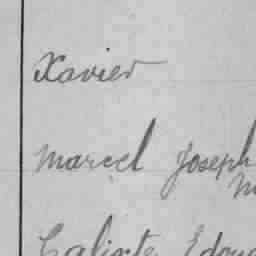 Xavier
Marcel Joseph
Calixte